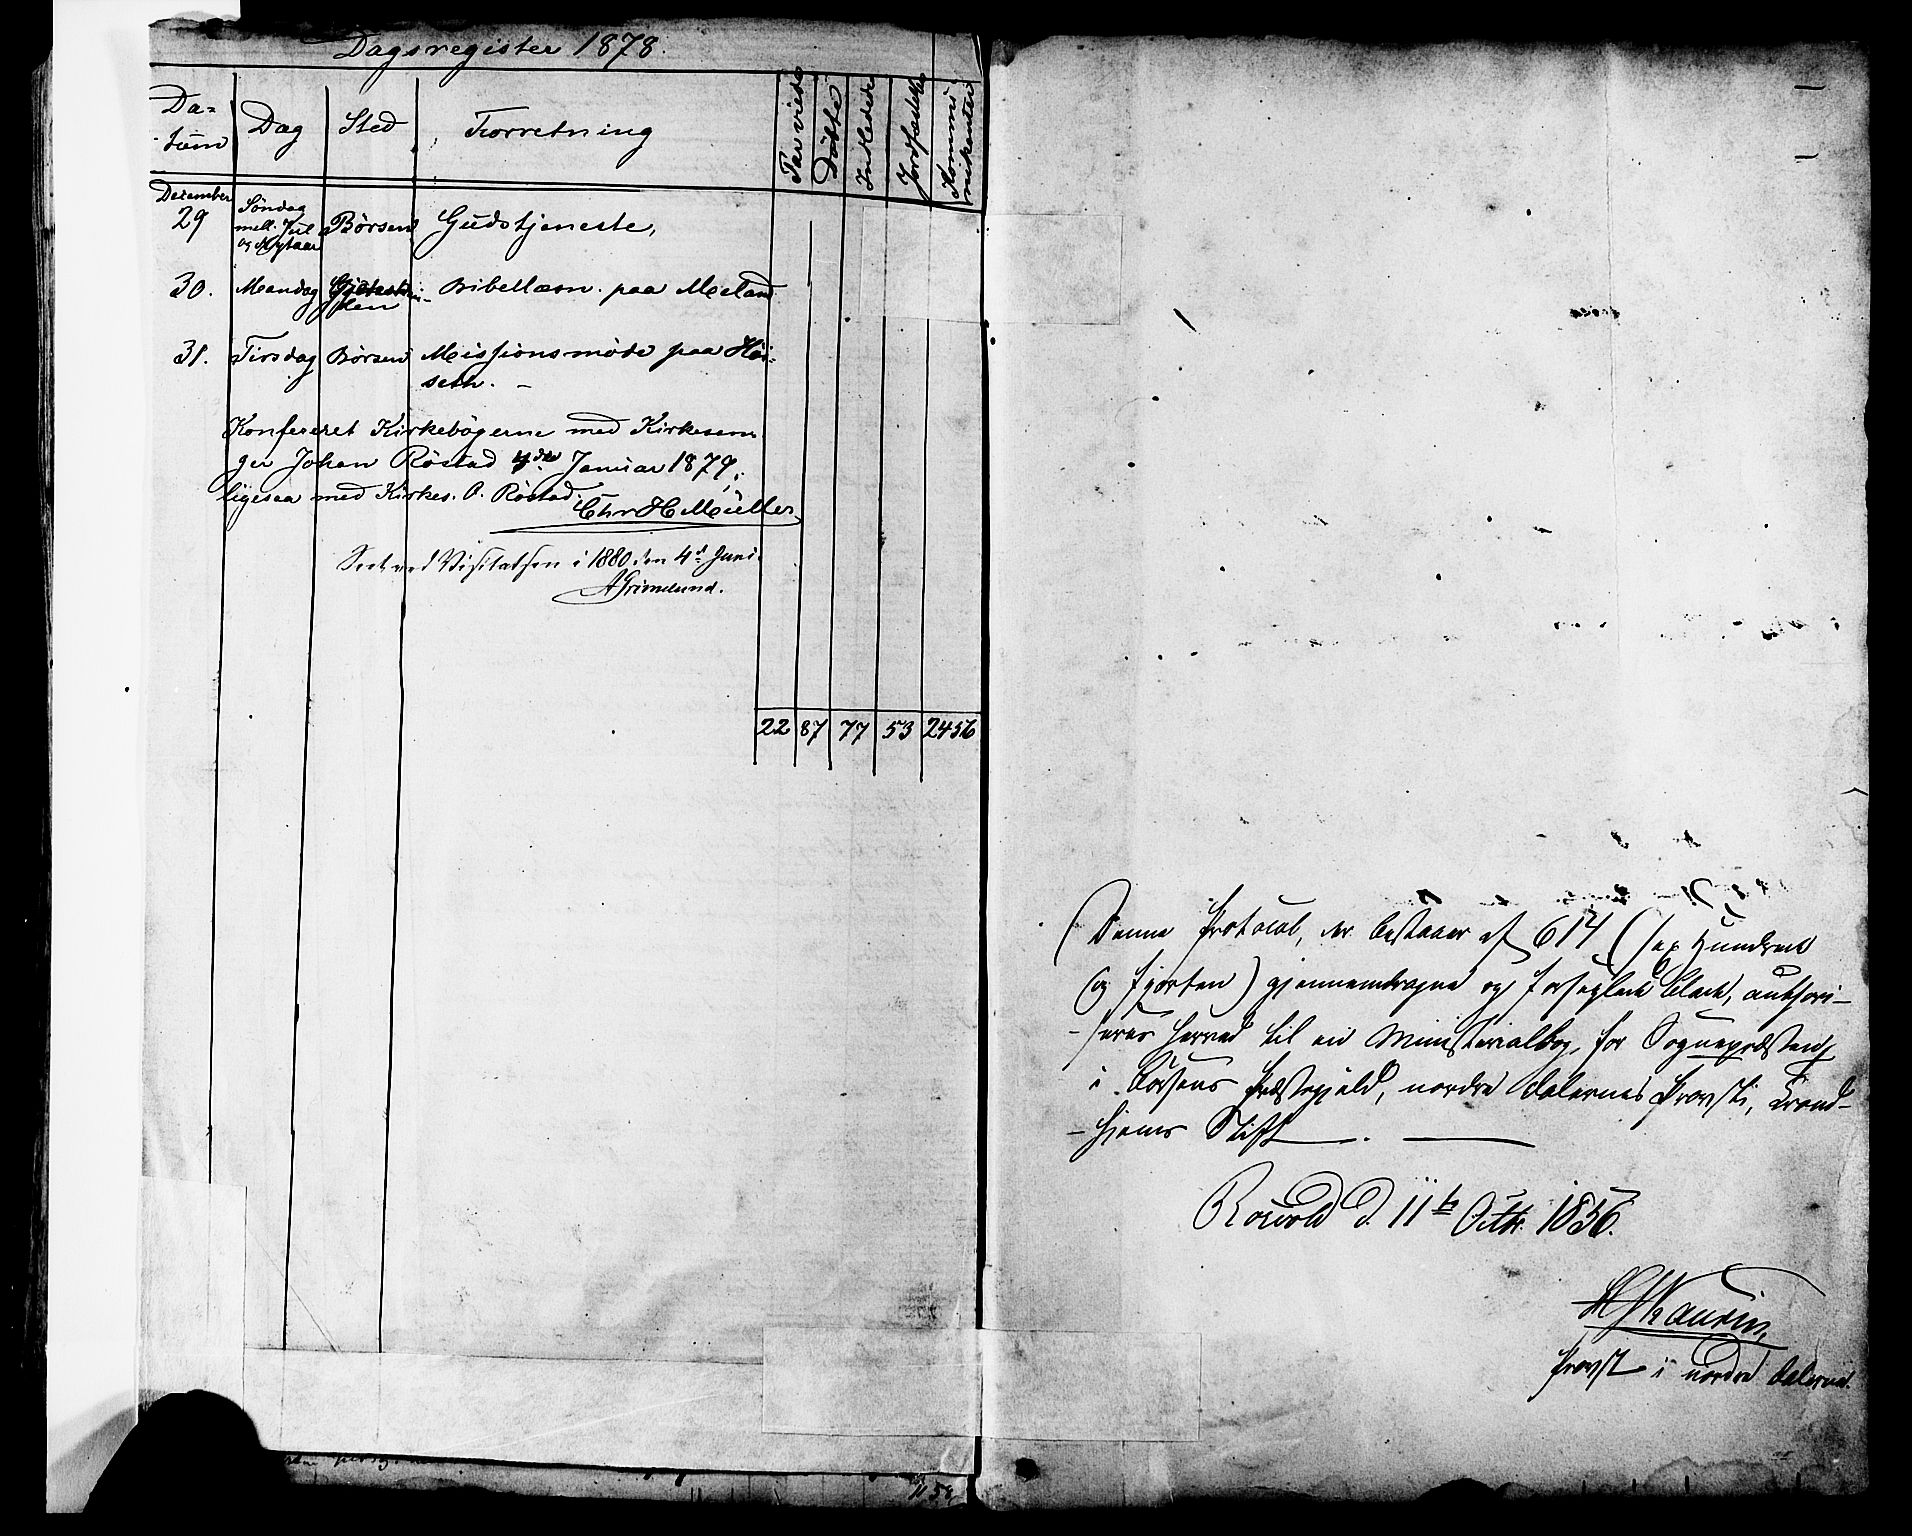 Dagsregister 1878.
Da-
tum
Dag
Sted
Forretning
Par viede
Döbte
Inledede
Jordfæstede
Kommuni-
nikanter
December
29
Söndag
mell. Jul
og Nytaar
Börsen
Gudstjeneste,
30.
Mandag
Bibellæsn. paa Meland
31.
Tirsdag
Börsen
Missionsmöde paa Höi-
seth. —
Konfereret Kirkebögerne med Kirkesan-
ger Johan Röstad Januar 1879,
ligesaa med Kirkes. O. Röstad.
Chr H Müller
Seet ved Visitatsen i 1880 den 4d Juni.
A Grimelund.
22 87 77 53 2456
Denne Protocol, der bestaaer af 614 (sex Hundrede
og fjorten) gjennemdragne og forseglede Blade, authori-
-seres herved til en Ministerialbog for Sognepræsten
i Börsens Præstegjeld, nordre Dalernes Provsti, Trond-
-hjems Stift.
Rosvold d. 11te Octbr. 1856.
Kaurin,
Provst i nordre Dalerne.